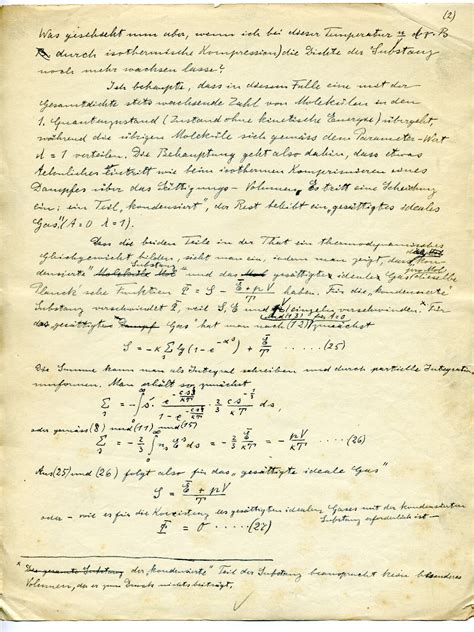 (2)
Was geschieht nun aber, wenn ich bei dieser Temperatur
durch isothermische Kompression) die Dichte der Substanz
noch mehr wachsen lasse?
Ich behaupte, dass in diesem Falle eine mit der
Gesamtdichte stets wachsende Zahl von Molekülen in den
1. Quantenzustand (Zustand ohne kinetische Energie) übergeht
während die übrigen Moleküle sich gemäss dem Parameter-Wert
λ = 1 verteilen. Die Behauptung geht also dahin, dass etwas
Aehnliches eintritt wie beim isothermen Komprimieren eines
Dampfes über das Sättigungs-Volumen. Es tritt eine Scheidung
ein; ein Teil "kondensiert", der Rest bleibt ein "gesättigtes ideales
Gas". (A = 0 λ = 1).
Dass die beiden Teile in der That ein thermodynamisches
Gleichgewicht bilden, sieht man ein, indem man zeigt, dass die "kon-
densierte" Substanz und das gesättigte ideale Gas pro Mol dieselbe
Planck'sche Funktion Φ = S − (Ē + pV)/T haben. Für die "kondensierte"
Substanz verschwindet Φ, weil S, E und V einzeln verschwinden.ˣ Für
das "gesättigte Gas" hat man nach (12) und (13) für A = 0 zunächst
S = −κ Σ lg(1 − e^−αˢ) + Ē/T ····· (25)
Die Summe kann man als Integral schreiben und durch partielle Integration
umformen. Man erhält so zunächst
oder gemäss (8) und (11) und (15)
····(26)
Aus (25) und (26) folgt also für das "gesättigte ideale Gas"
S = (Ē + pV)/T
oder – wie es für die Koexistenz des gesättigten idealen Gases mit der kondensierten
Substanz erforderlich ist –
Φ = 0 ······(27)
ˣ der "kondensierte" Teil der Substanz beansprucht kein besonderes
Volumen, da er zum Druck nichts beiträgt.